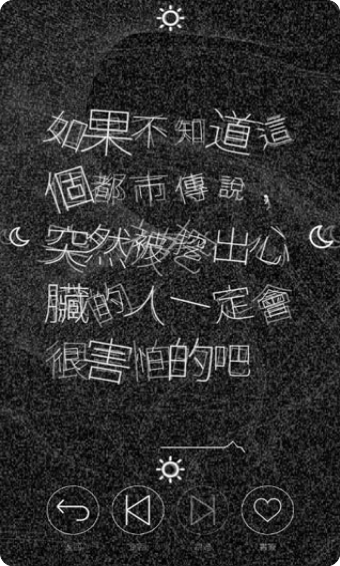 如果不知道這
個都市傳說，
突然被挖出心
臟的人一定會
很害怕的吧